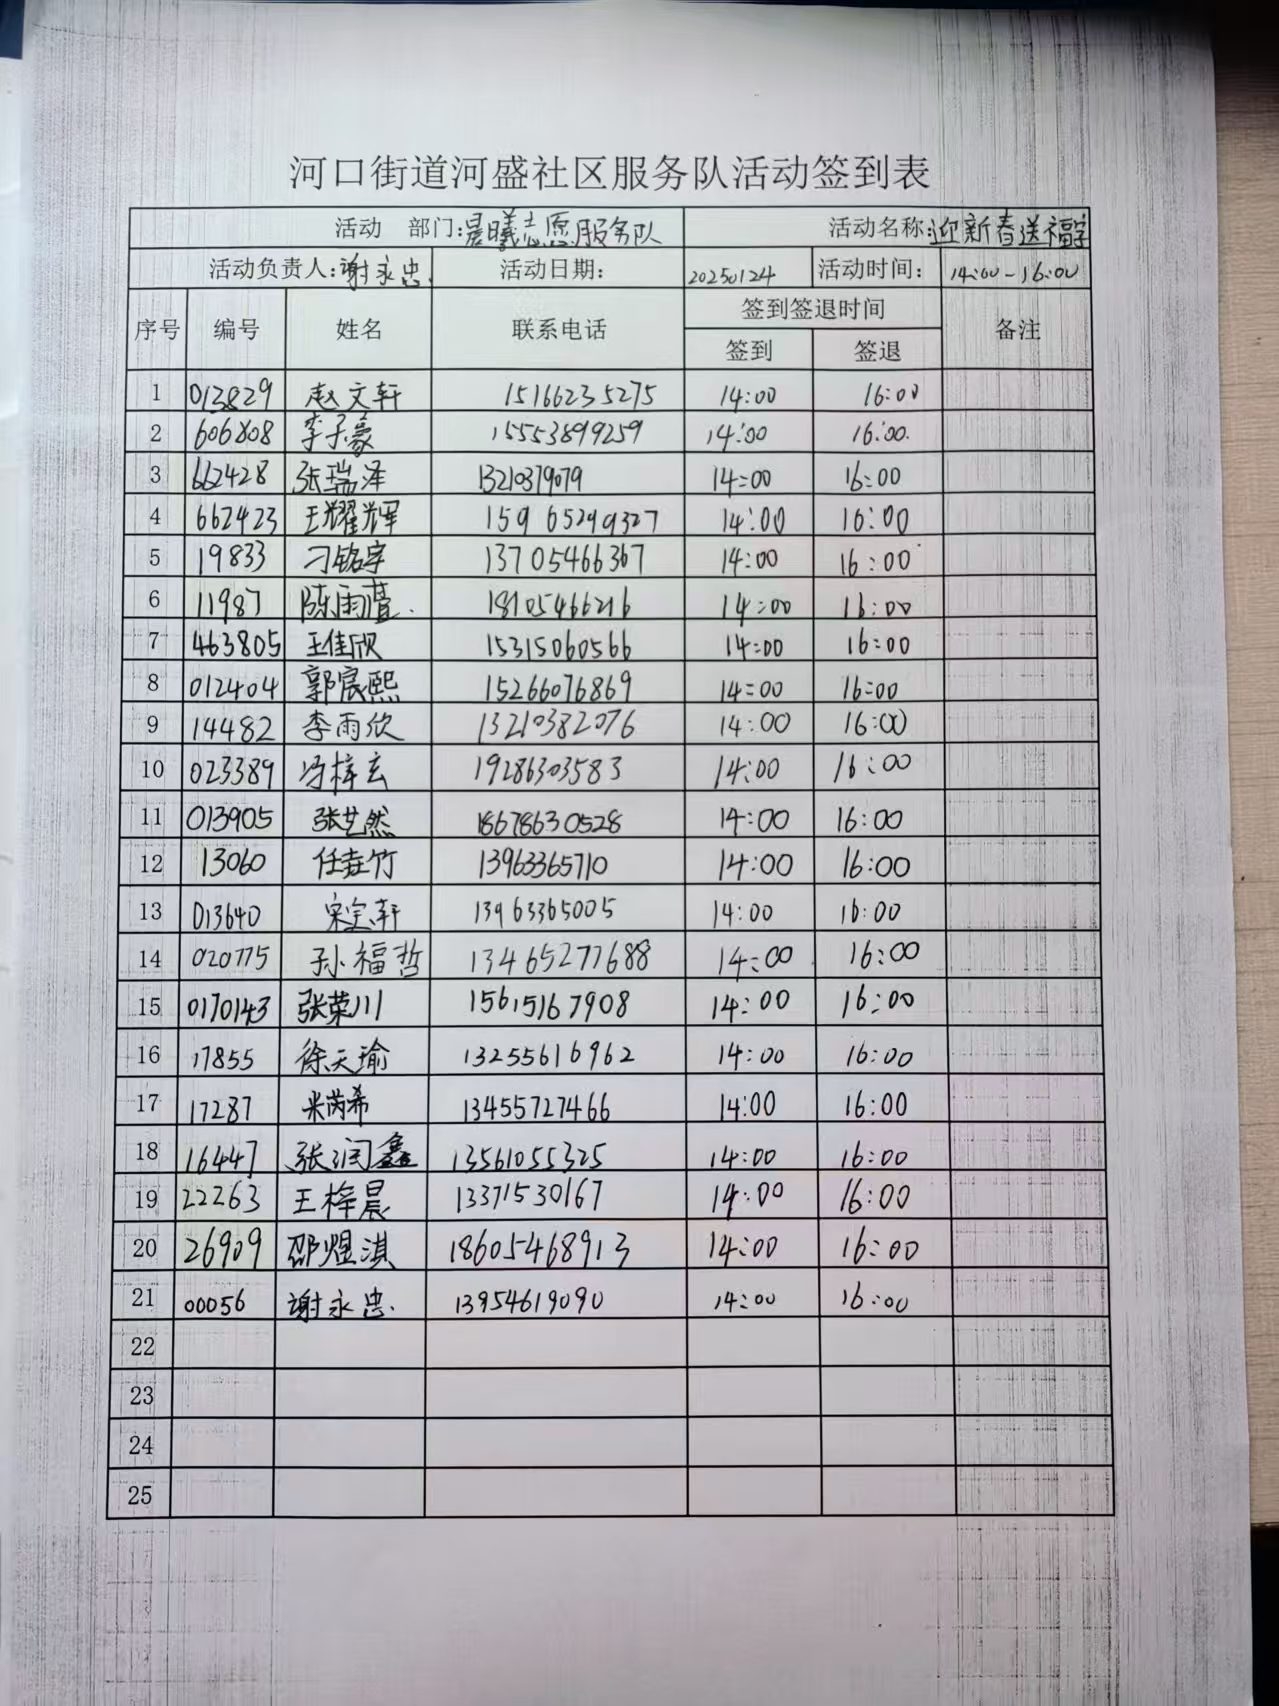 河口街道河盛社区服务队活动签到表
活动 部门:晨曦志愿服务队 活动名称:迎新春送福字
活动负责人:谢永忠. 活动日期: 20250124 活动时间: 14:00-16:00
序号 编号 姓名 联系电话 签到签退时间 备注
签到 签退
1 013829 赵文轩 15166235275 14:00 16:00
2 606808 李子豪 15553899259 14:00 16:00.
3 662428 张瑞泽 13210379079 14:00 16:00
4 662423 王耀辉 15965299327 14:00 16:00
5 19833 刁铭宇 13705466367 14:00 16:00
6 11987 陈雨萱. 18105466216 14:00 16:00
7 463805 王佳欣 15315060566 14:00 16:00
8 012404 郭宸熙 15266076869 14:00 16:00
9 14482 李雨欣 13210382076 14:00 16:00
10 023389 冯梓玄 19286303583 14:00 16:00
11 013905 张艺然 18678630528 14:00 16:00
12 13060 任垚竹 13963365710 14:00 16:00
13 013640 13963365005 14:00 16:00
14 020775 孙福哲 13465277688 14:00 16:00
15 0170143 张荣川 15615167908 14:00 16:00
16 17855 徐天瑜 13255616962 14:00 16:00
17 17287 米芮希 13455727466 14:00 16:00
18 16447 张润鑫 13561055325 14:00 16:00
19 22263 王梓晨 13371530167 14:00 16:00
20 26909 邵煜淇 18605468913 14:00 16:00
21 00056 谢永忠. 13954619090 14:00 16:00
22
23
24
25